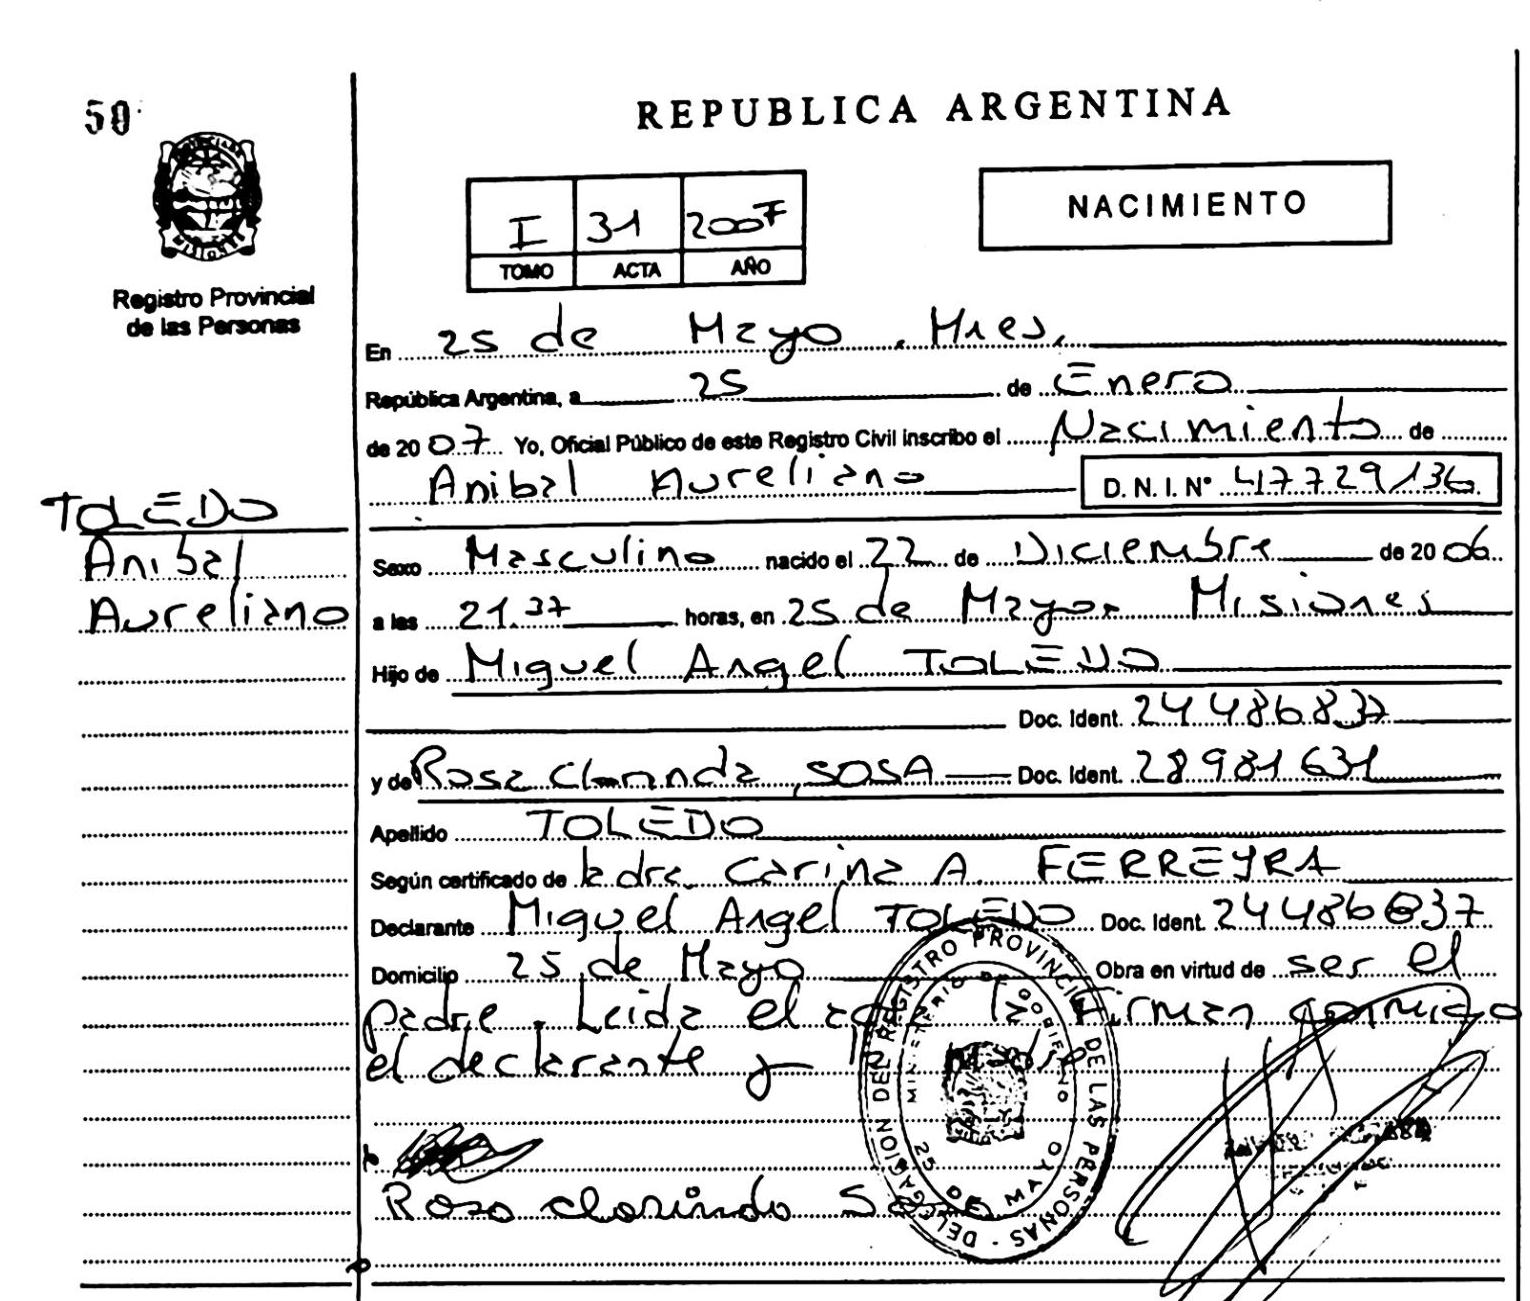 50
REPUBLICA ARGENTINA
MISIONES
Registro Provincial
de las Personas
I 31 2007
TOMO ACTA AÑO
NACIMIENTO
En 25 de Mayo. Mnes,
República Argentina, a 25 de Enero
de 2007 Yo, Oficial Público de este Registro Civil inscribo el Nacimiento de
Anibal Aureliano D.N.I. Nº 47729136
TOLEDO
Anibal
Aureliano
Sexo Masculino nacido el 22 de Diciembre de 2006
a las 21.37 horas, en 25 de Mayo. Misiones
Hijo de Miguel Angel TOLEDO
Doc. Ident. 24486837
y de Rosa Clorinda SOSA Doc. Ident. 28981631
Apellido TOLEDO
Según certificado de la dra. Carina A. FERREYRA
Declarante Miguel Angel TOLEDO Doc. Ident. 24486837
Domicilio 25 de Mayo Obra en virtud de ser el
padre. Leida el acta la firman conmigo
el declarante y la madre
Rosa Clorinda Sosa
DELEGACION DEL REGISTRO PROVINCIAL DE LAS PERSONAS
MINISTERIO DE GOBIERNO
25 DE MAYO